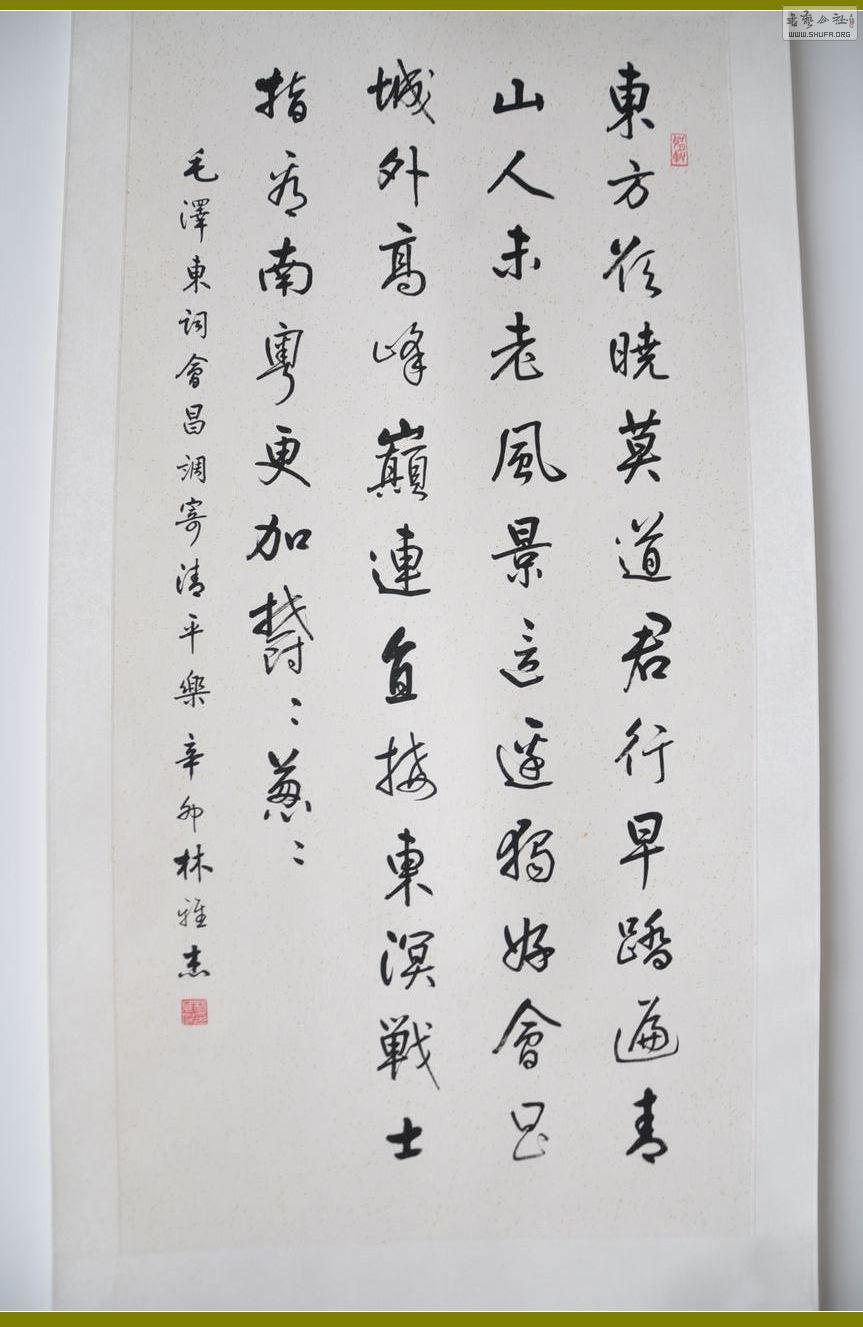 東方欲曉莫道君行早踏遍青
山人未老風景這邊獨好會昌
城外高峰巔連直接東溟戰士
指看南粵更加鬱〻蔥〻
毛澤東詞會昌調寄清平樂辛卯林雅杰
WWW.SHUFA.ORG